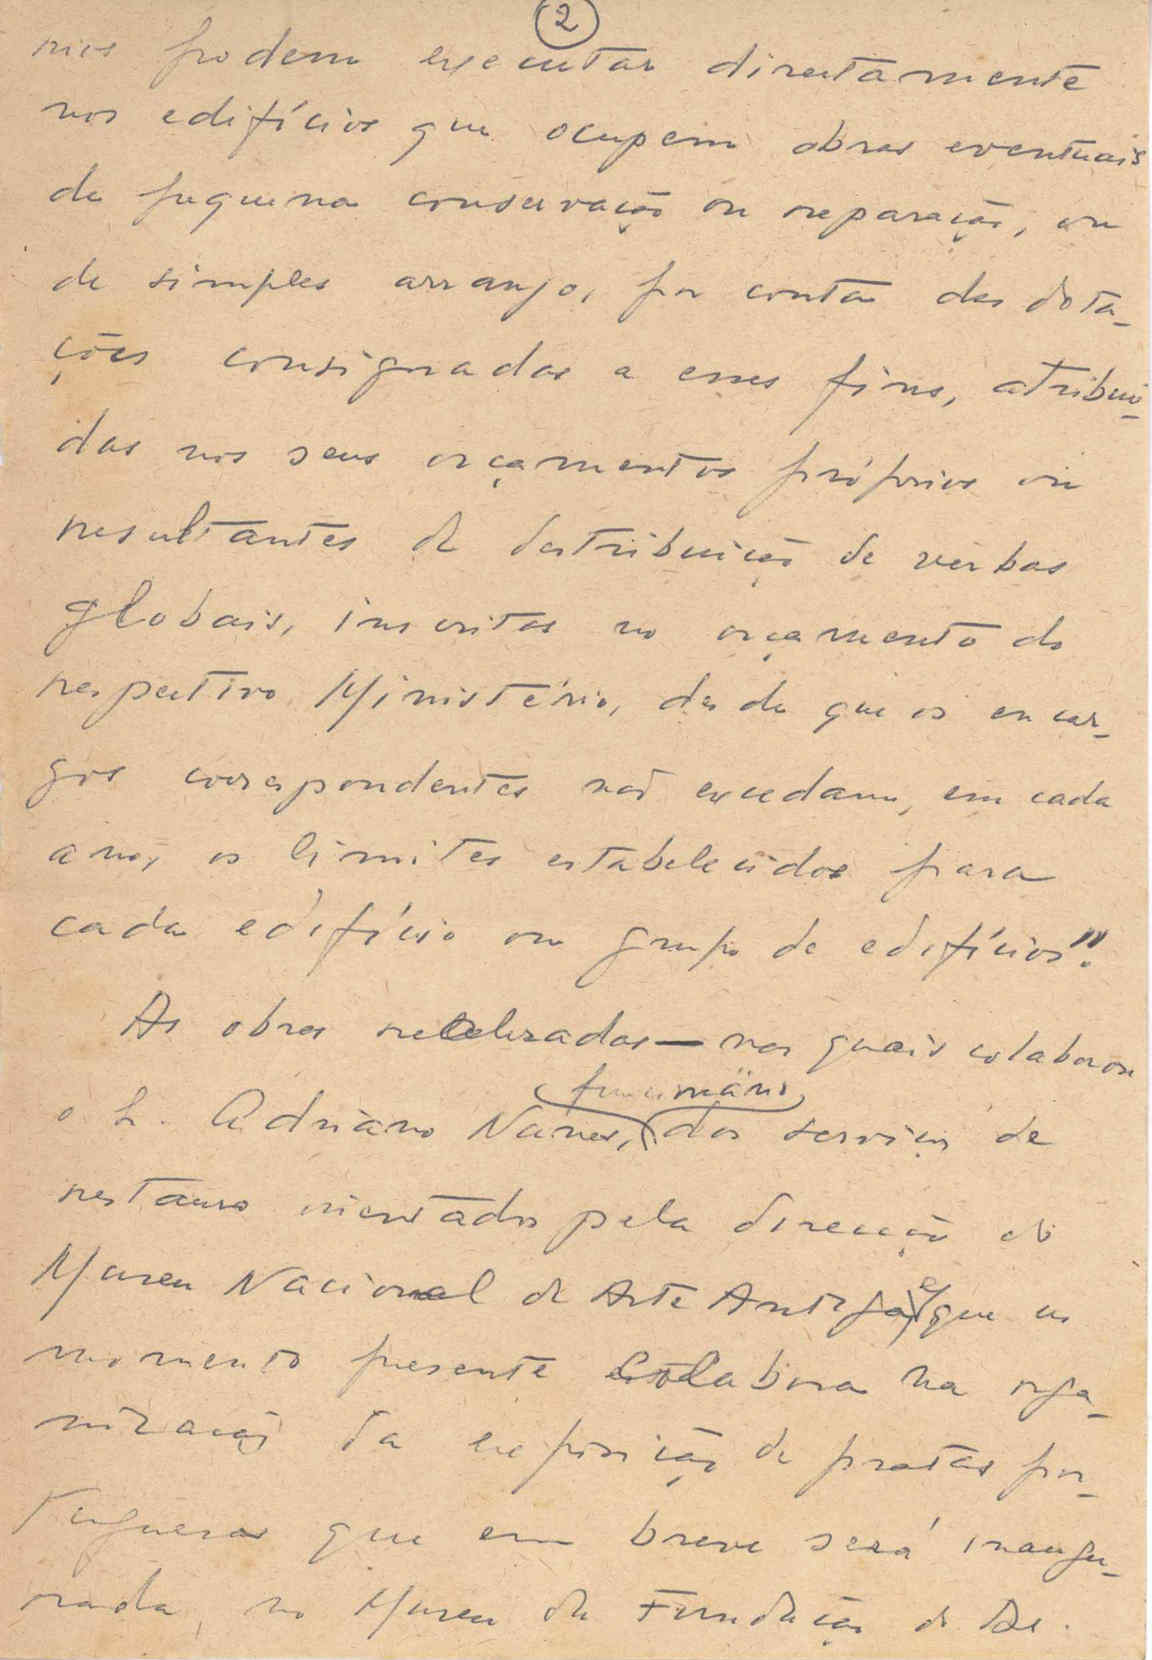 2
rios podem executar directamente
nos edifícios que ocupem obras eventuais
de pequena conservação ou reparação, ou
de simples arranjo, por conta das dota-
ções consignadas a esses fins, atribuí-
das nos seus orçamentos próprios ou
resultantes de distribuição de verbas
globais, inscritas no orçamento do
respectivo Ministério, desde que os encar-
gos correspondentes não excedam, em cada
ano, os limites estabelecidos para
cada edifício ou grupo de edifícios".
As obras — nas quais colaborou
funcionário
o Sr. Adriano Nunes, dos serviços de
restauro orientados pela direcção do
Museu Nacional de Arte Antiga e que no
momento presente colabora na orga-
nização da exposição de pratas por-
tuguesas que em breve será inaugu-
rada, no Museu da Fundação de